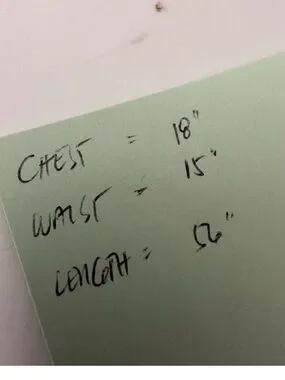 CHEST = 18"
WAIST = 15"
LENGTH = 56"